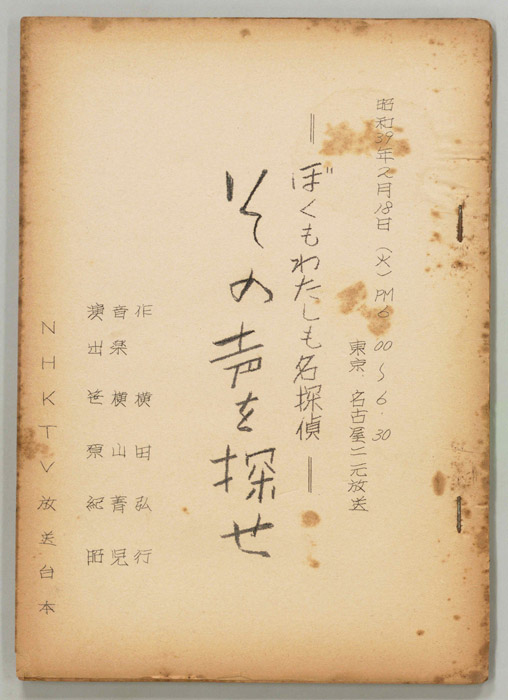 昭和39年2月18日(火)PM6.00〜6.30
東京・名古屋二元放送
ぼくもわたしも名探偵
その声を探せ
作 横田弘行
音楽 横山菁児
演出 笹原紀昭
NHKTV放送台本